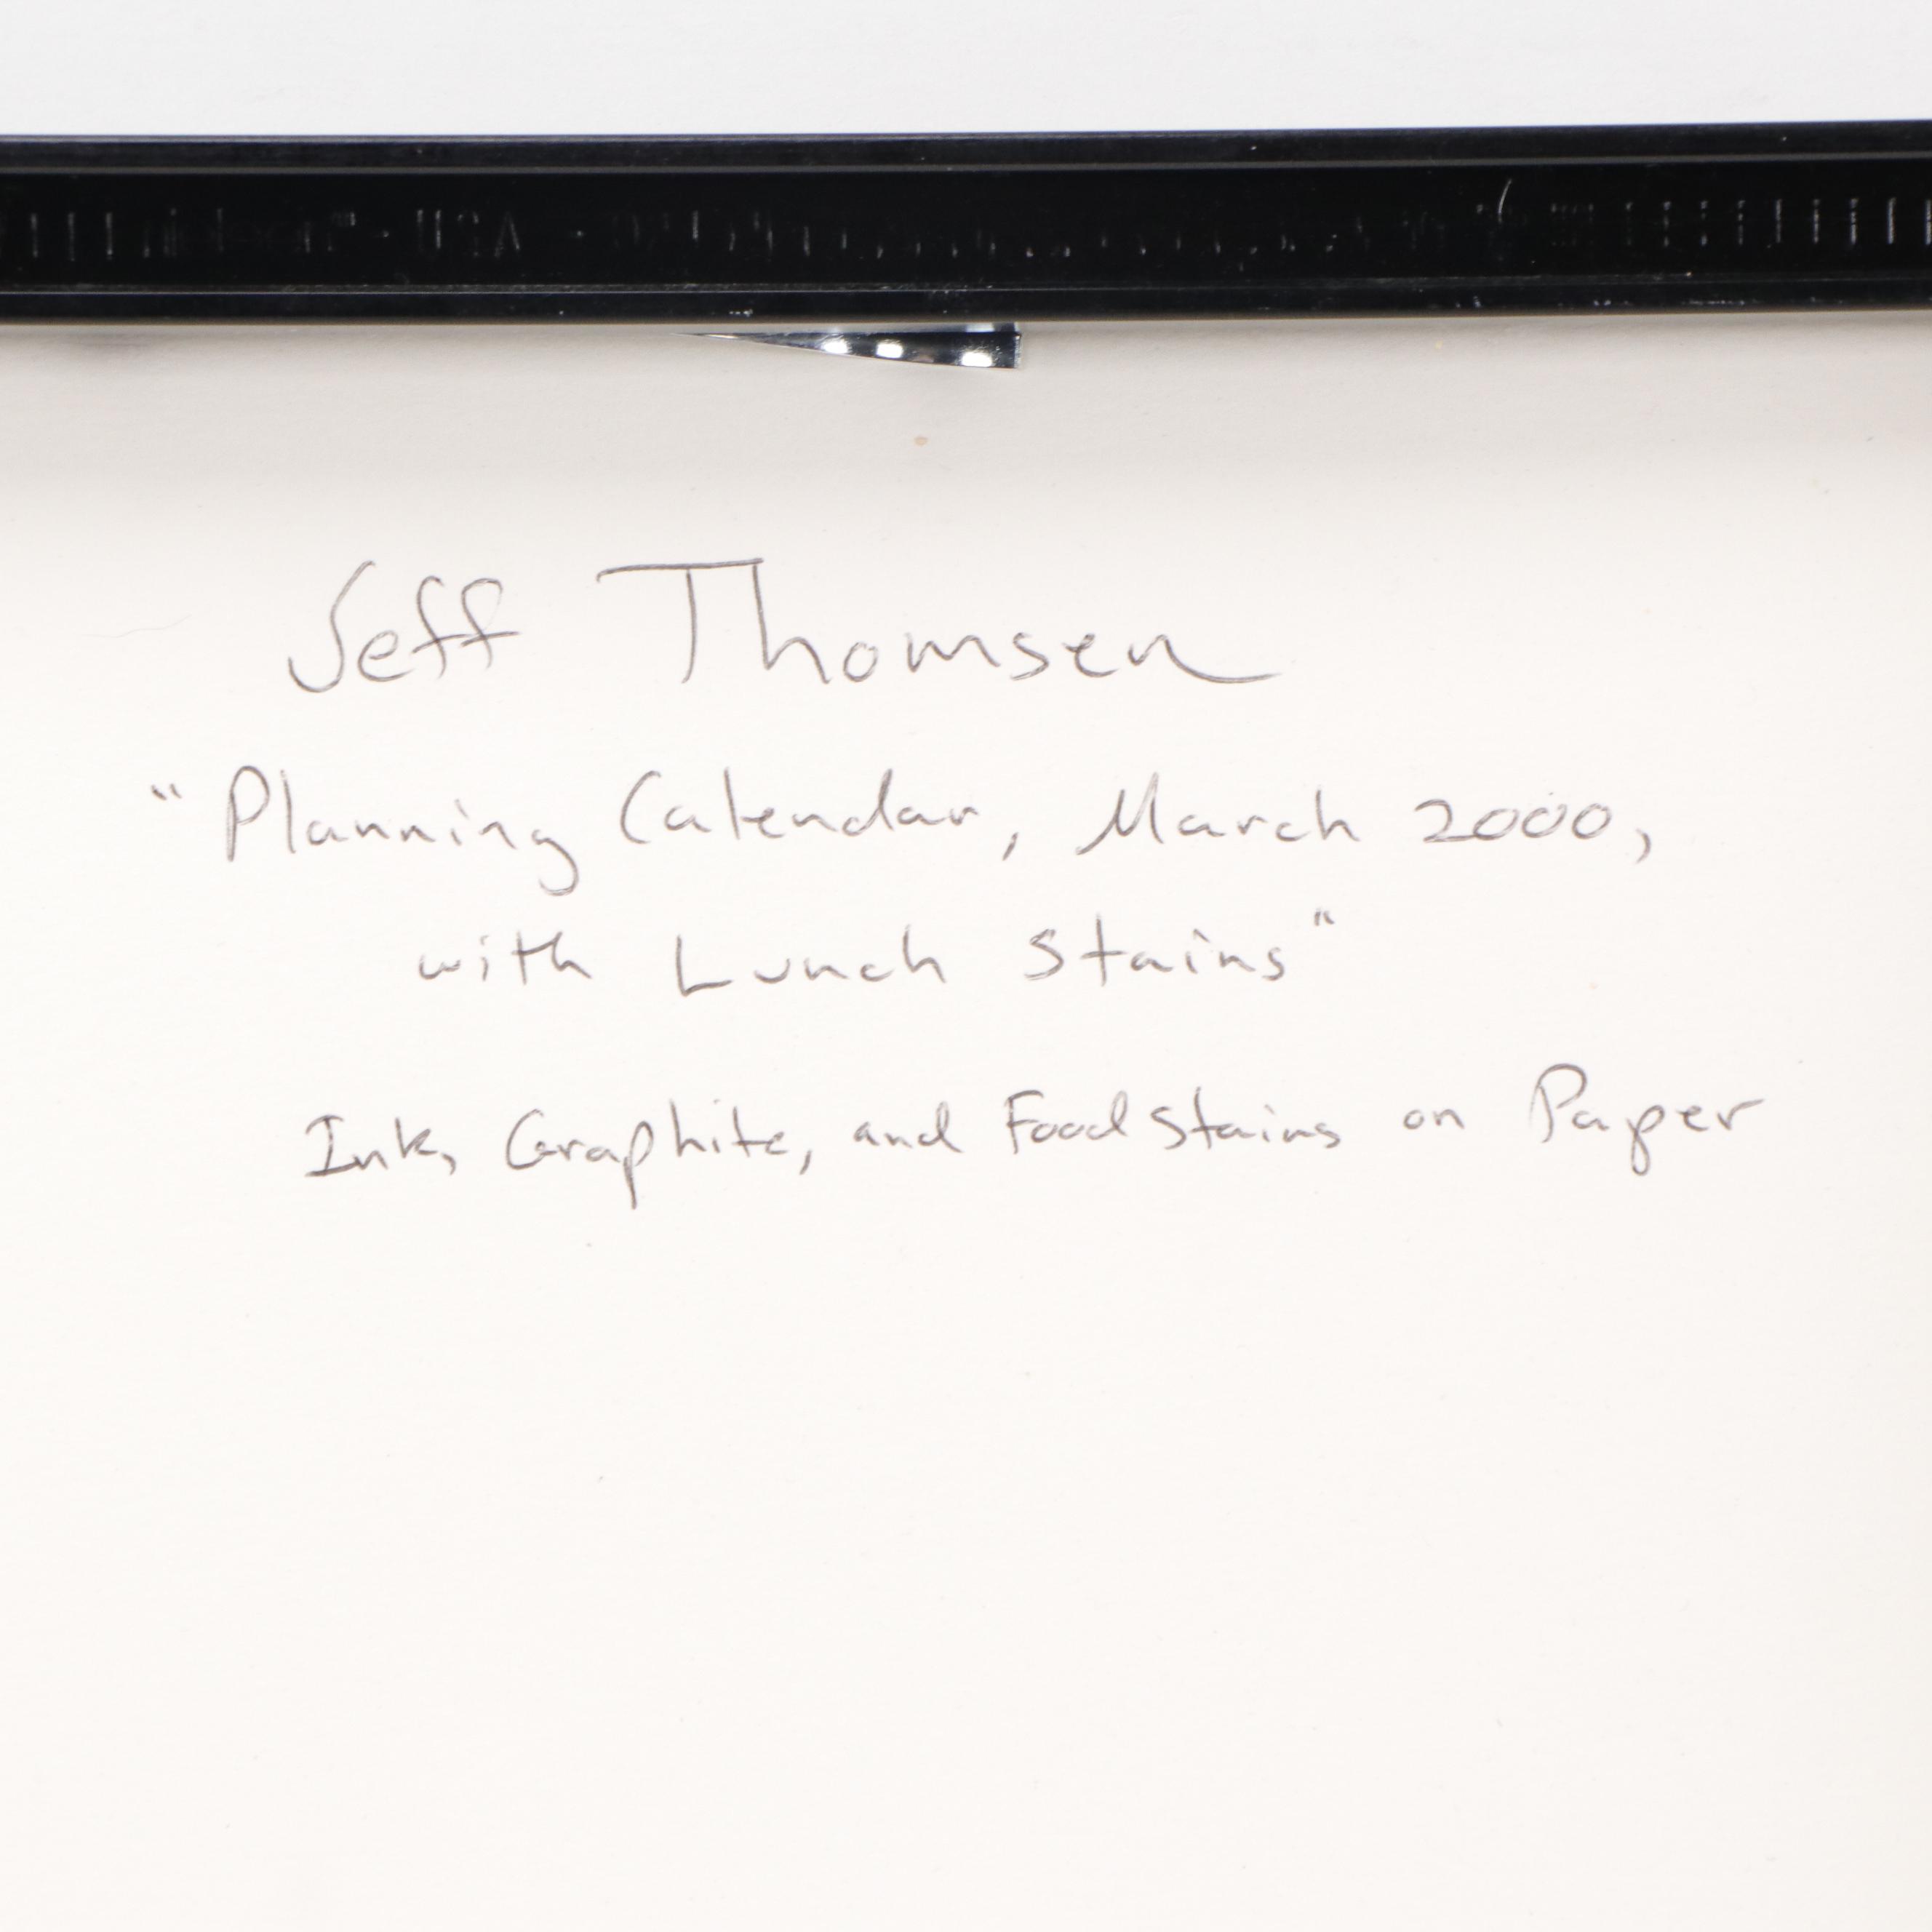 Jeff Thomsen
"Planning Calendar, March 2000,
with Lunch Stains"
Ink, Graphite, and Food Stains on Paper